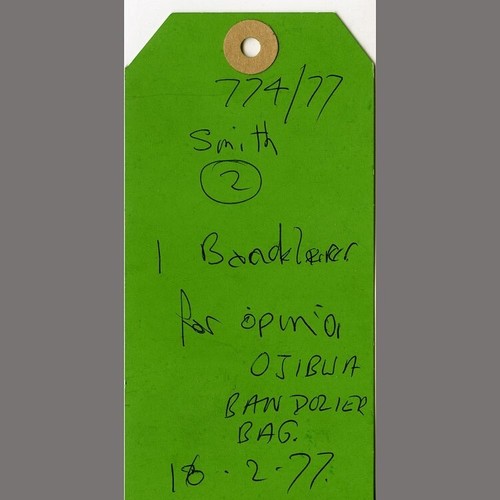 774/77
Smith
2
1 Bandoleer
for opinion
OJIBWA
BANDOLIER
BAG.
18.2.77.